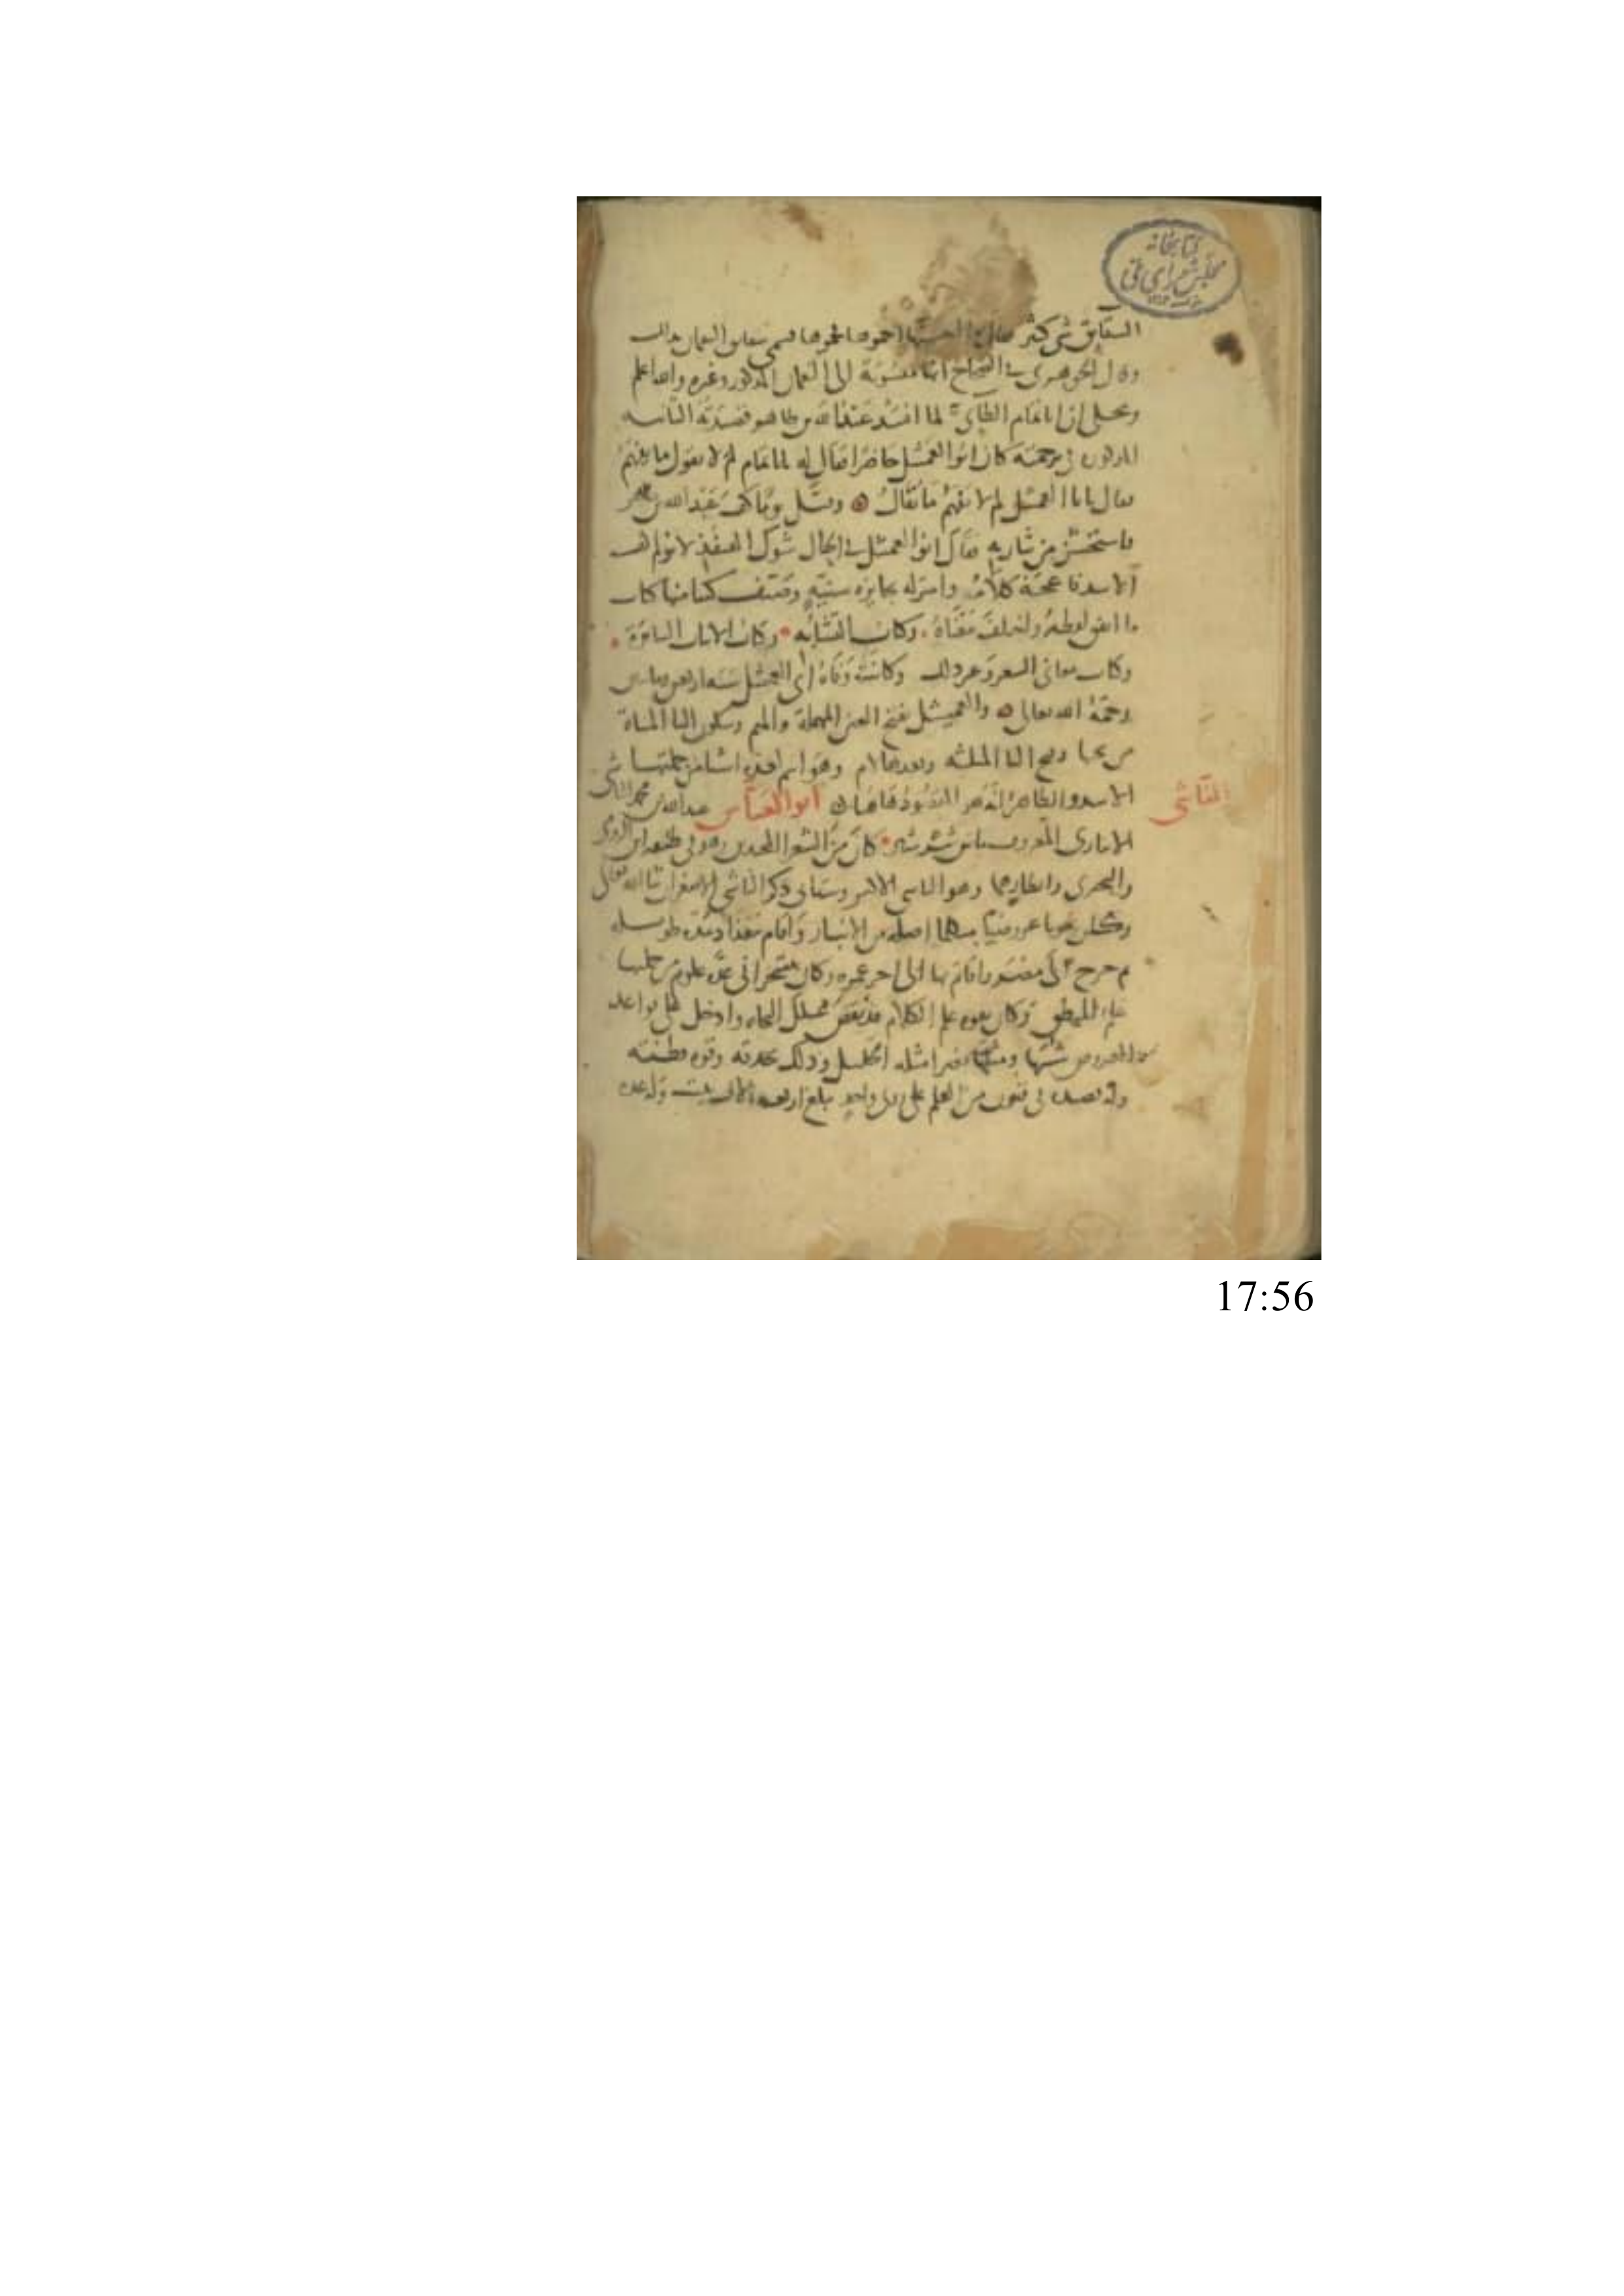 كتابخانه
مجلس شورای ملی
الشقايق شي كثير فقال ما احسنها احموها فحموها فسمي شقايق النعمان بذلك
وقال الجوهري في الصحاح انها منسوبة الى النعمان المذكور وغيره والله اعلم
وحكي ان ابا تمام الطائي لما انشد عبد الله بن طاهر قصيدته البائية
المذكورة في ترجمته كان ابو العميثل حاضرا فقال له يا ابا تمام لم لا تقول ما يفهم
فقال يا ابا العميثل لم لا تفهم ما يقال وقبل يوما كف عبد الله بن طاهر
فاستخشن من شاربه فقال ابو العميثل في الحال شوك القنفذ لا يولم كف
الاسد فاعجبه كلامه وامر له بجايزة سنية وصنف كتبا منها كتاب
ما اتفق لفظه واختلف معناه وكتاب التشابه وكتاب الابيات السايرة
وكتاب معاني الشعر وغير ذلك وكانت وفاة ابي العميثل سنة اربعين ومايتين
رحمه الله تعالى والعميثل بفتح العين المهملة والميم وسكون اليا المثناة
من تحتها وفتح الثا المثلثة وبعدها لام وهو اسم لعدة اشيا من جملتها
الاسد والظاهر انه هو المقصود هاهنا ابو العباس عبد الله بن محمد الناشي
الناشى
الانباري المعروف بابن شرشير كان من الشعرا المجيدين وهو في طبقة ابن الرومي
والبحتري وانظارهما وهو الناشي الاكبر وسياتي ذكر الناشي الاصغر ان شا الله تعالى
وكان نحويا عروضيا متكلما اصله من الانبار واقام ببغداد مدة طويلة
ثم خرج الى مصر واقام بها الى اخر عمره وكان متبحرا في عدة علوم من جملتها
علم المنطق وكان بقوة علم الكلام قد نقض علل النحاة وادخل على قواعد
العروض شبها ومثلها بغير امثلة الخليل وذلك بحذقه وقوة فطنته
وله قصيدة في فنون من العلم على روي واحد تبلغ اربعة الاف بيت وله عدة
17:56